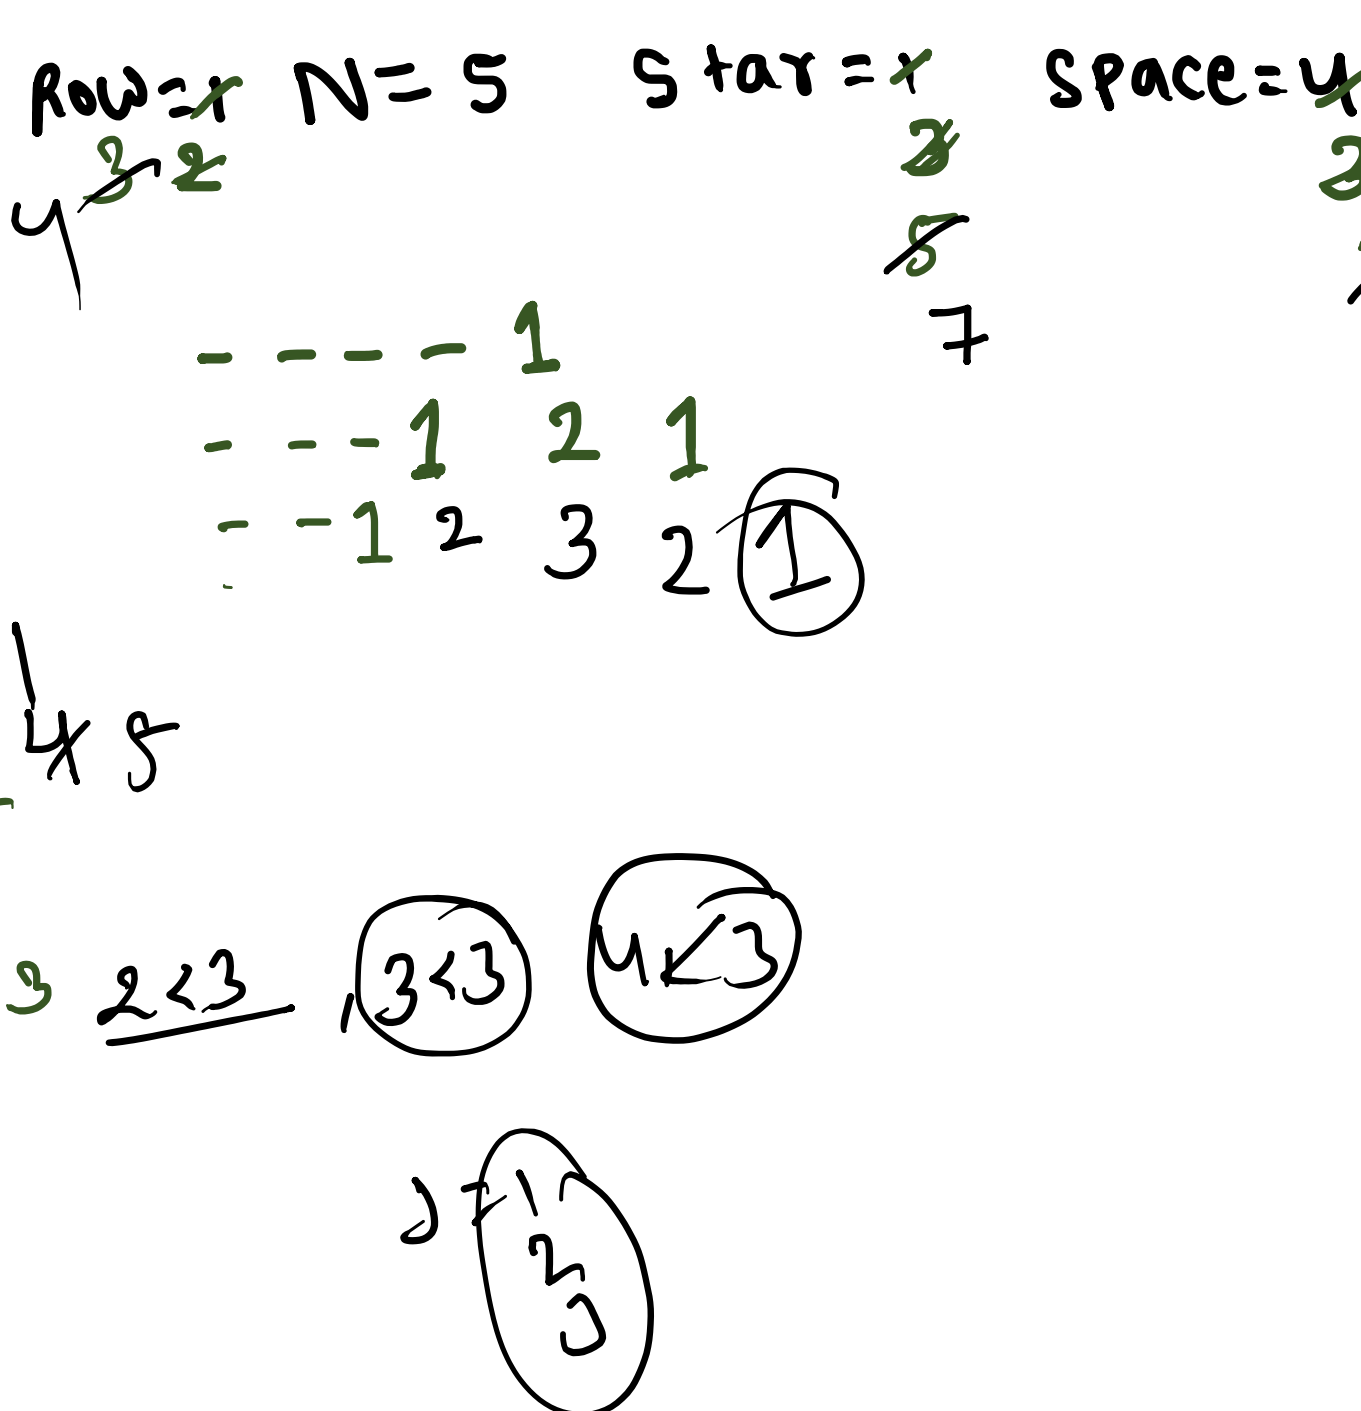 Row=1 N=5 Star=1 Space=4
3 2 3 3
4 5
7
- - - - 1
- - - 1 2 1
- - 1 2 3 2 1
4 5
3 2<3 , 3<3 4<3
J=1
2
3